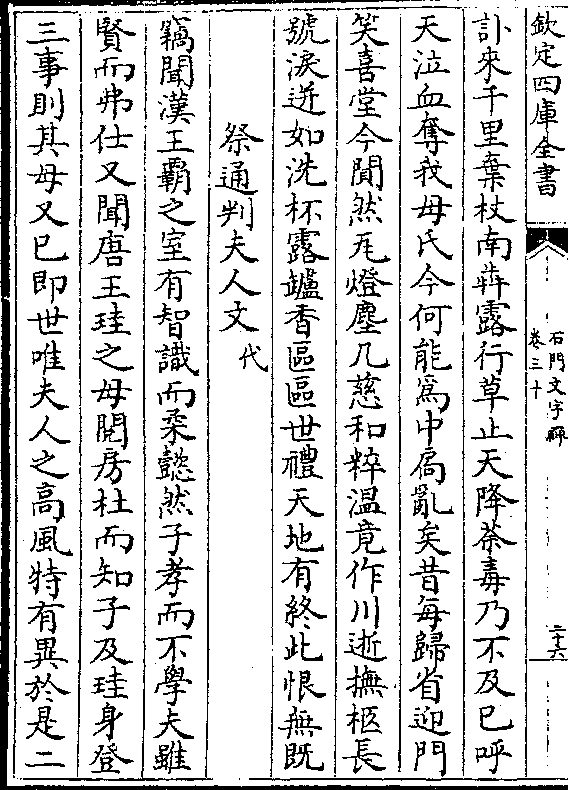 欽定四庫全書
石門文字禪
卷三十
二十六
訃來千里棄杖南犇露行草止天降荼毒乃不及已呼
天泣血奪我母氏今何能為中扃亂矣昔每歸省迎門
笑喜堂今闃然尨燈塵几慈和粹溫竟作川逝撫柩長
號淚迸如洗杯露罏香區區世禮天地有終此恨無既
祭通判夫人文代
竊聞漢王霸之室有智識而柔懿然子孝而不學夫雖
賢而弗仕又聞唐王珪之母閱房杜而知子及珪身登
三事則其母又已即世唯夫人之高風特有異於是二